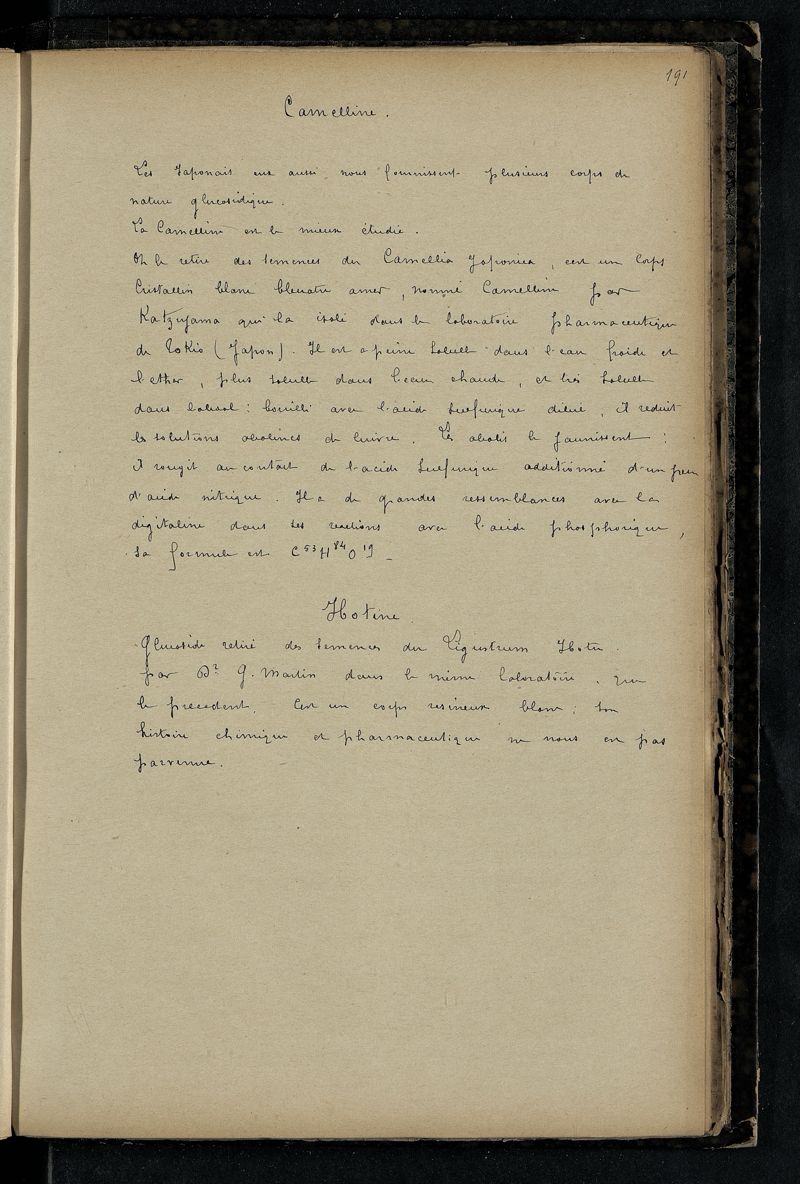 191
Camelline.
Les Japonais eux aussi nous fournissent plusieurs corps de
nature glucosidique.
La Camelline est le mieux étudié.
On le retire des semences du Camellia Japonica, c'est un Corps
Cristallin blanc bleuatre amer, nommé Camellin par
Katzuyama qui l'a isolé dans le laboratoire pharmaceutique
de Tokio (Japon). Il est a peine soluble dans l'eau froide et
l'ether, plus soluble dans l'eau chaude, et très soluble
dans l'alcool: bouilli avec l'acide sulfurique dilué, il reduit
les solutions alcalines de Cuivre. Les alcalis le jaunissent:
il rougit au contact de l'acide sulfurique additionné d'un peu
d'acide nitrique. Il a de grandes ressemblances avec la
digitaline dans ses reactions avec l'acide phosphorique,
sa formule est C⁵³H⁸⁴O¹⁹ _
Ibotine.
Glucoside retiré des semences du Ligustrum Ibota.
par Dr G. Martin dans le même laboratoire, que
le precedent. C'est un corps resineux blanc; son
histoire chimique et pharmaceutique ne nous est pas
parvenue.